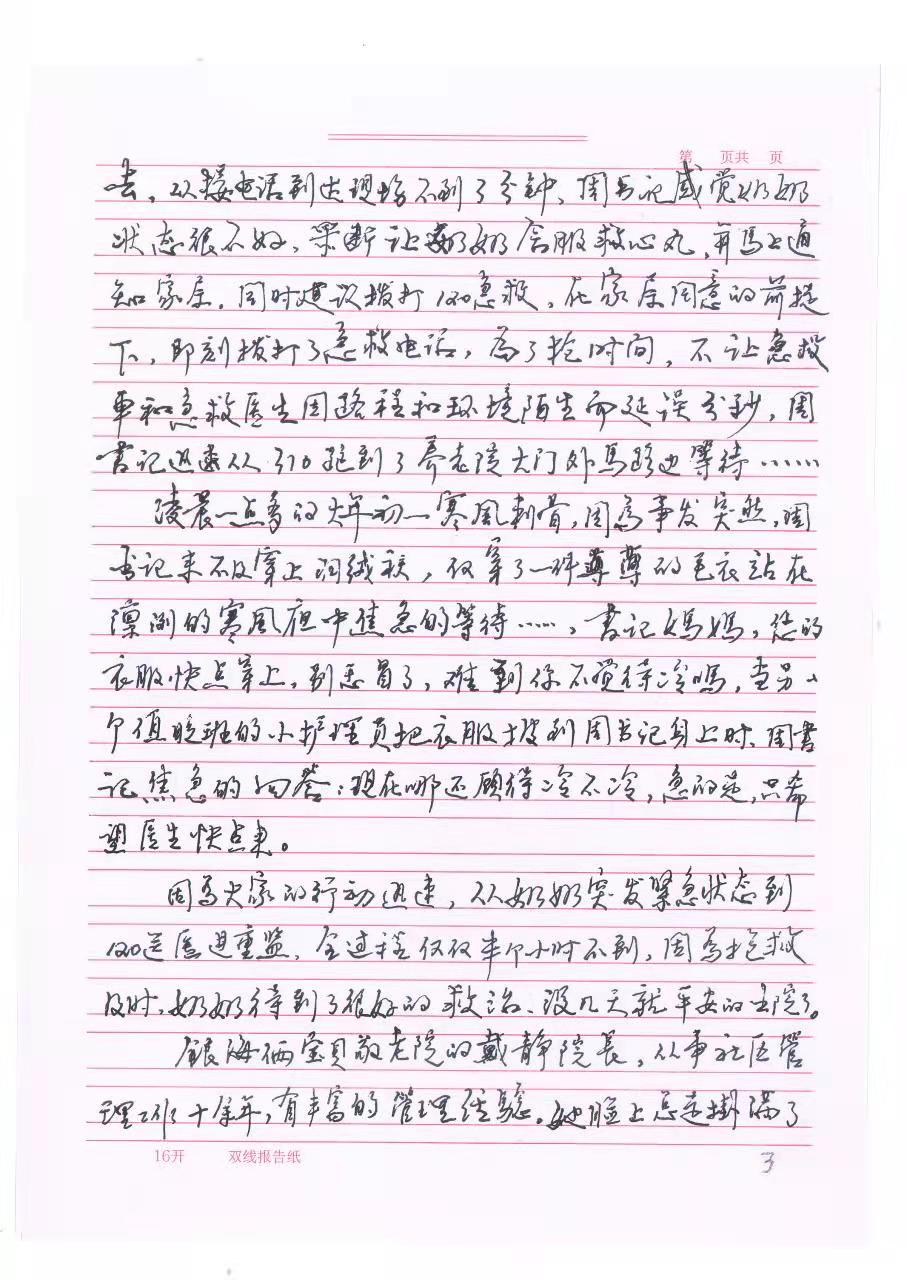 第 页共 页
去，从接电话到达现场不到3分钟、周书记感觉奶奶
状态很不好，果断让奶奶含服救心丸，并马上通
知家属，同时建议拨打120急救，在家属同意的前提
下，即刻拨打了急救电话，为了抢时间，不让急救
车和急救医生因路程和环境陌生而延误分秒，周
书记迅速从310跑到了养老院大门外马路边等待……
凌晨一点多的大年初一寒风刺骨，因为事发突然，周
书记来不及穿上羽绒袄，仅穿了一件薄薄的毛衣站在
凛冽的寒风夜中焦急的等待……，书记妈妈，您的
衣服快点穿上，别感冒了，难到你不觉得冷吗，当另一
个值晚班的小护理员把衣服披到周书记身上时、周书
记焦急的回答：现在哪还顾得冷不冷，急的是，只希
望医生快点来。
因为大家的行动迅速，从奶奶突发紧急状态到
120送医进重监，全过程仅仅半个小时不到，因为抢救
及时，奶奶得到了很好的救治、没几天就平安的出院了。
银海俩宝贝敬老院的戴静院长，从事社区管
理工作十余年，有丰富的管理经验。她脸上总是掛满了
16开 双线报告纸
3